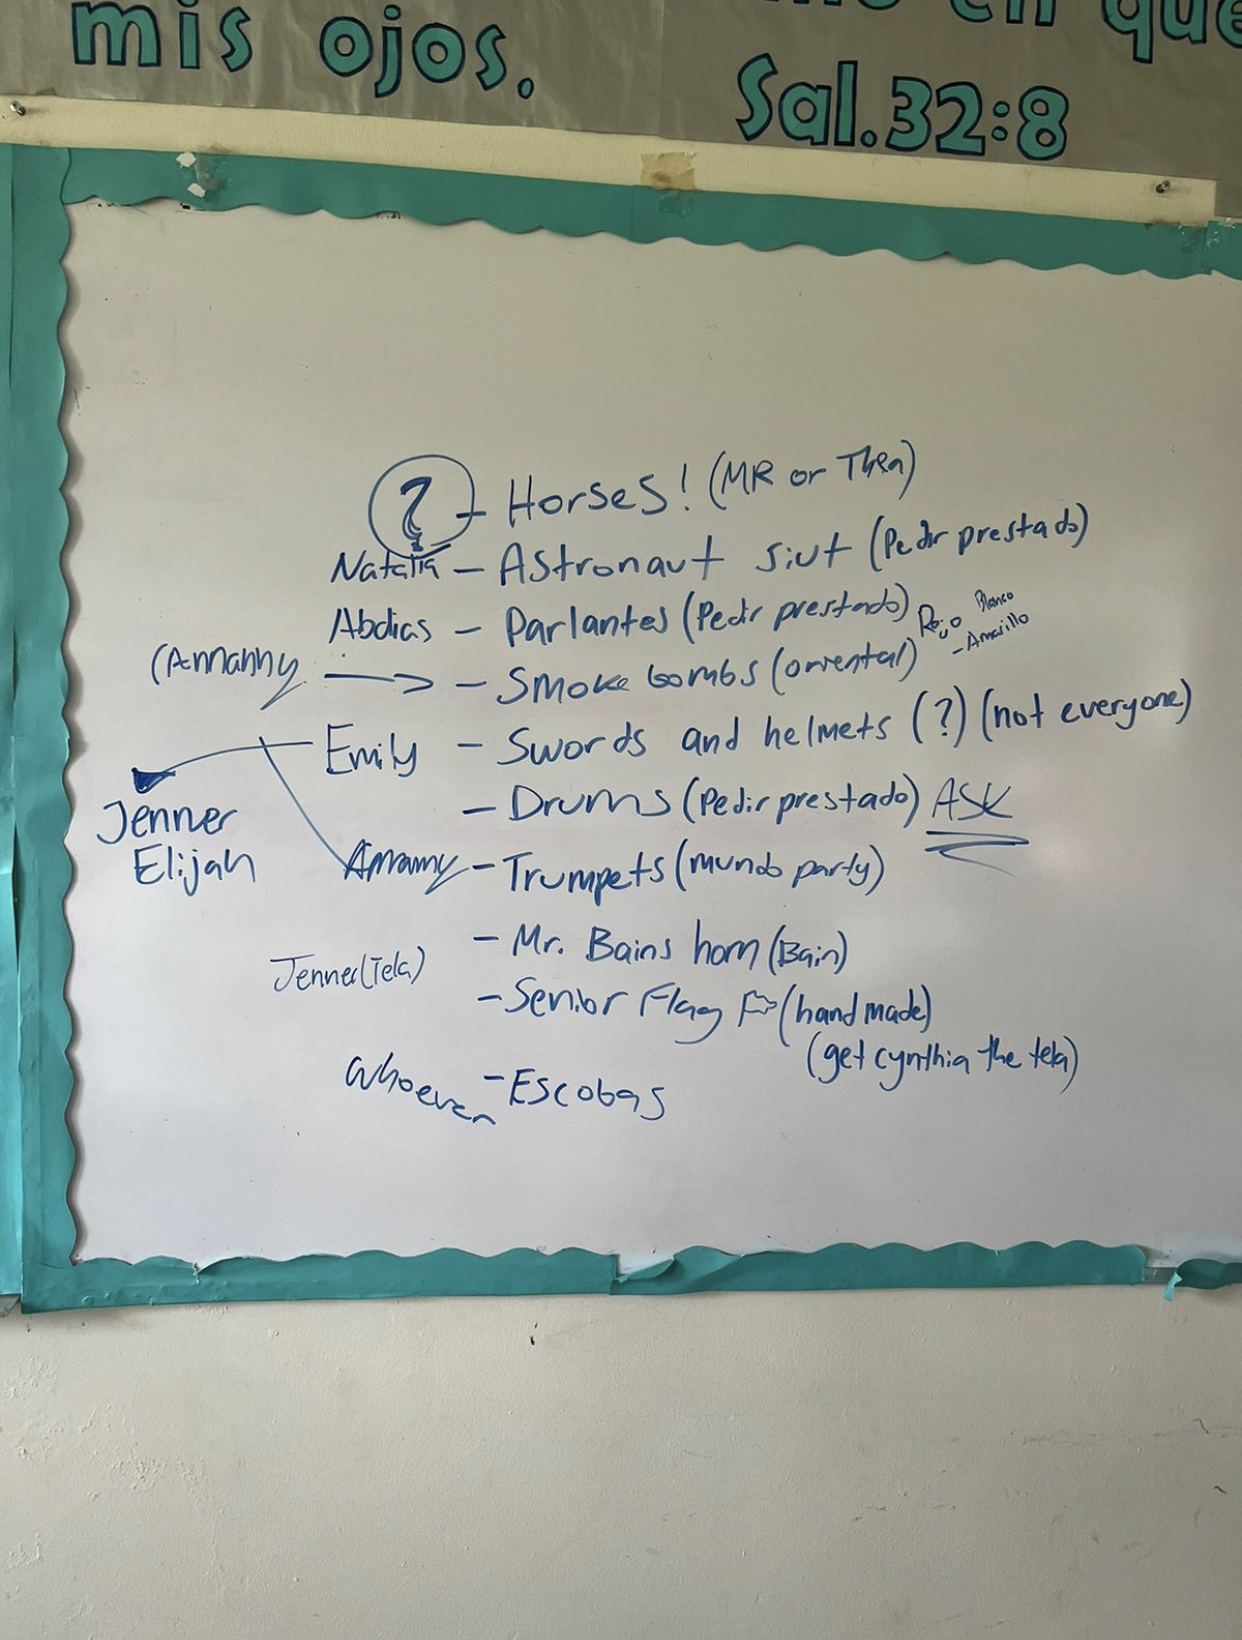 mis ojos.
en que
Sal.32:8
? - Horses! (MR or Thea)
Natalia - Astronaut siut (Pedir prestado)
Abdias - Parlantes (Pedir prestado) Rojo Blanco
- Amarillo
(Amanny → - Smoke bombs (oriental)
Emily - Swords and helmets (?) (not everyone)
Jenner
Elijah
- Drums (Pedir prestado) ASK
Amanny - Trumpets (mundo party)
- Mr. Bains horn (Bain)
Jenner (Tela)
- Senior Flag (handmade)
(get cynthia the tela)
Whoever - Escobas